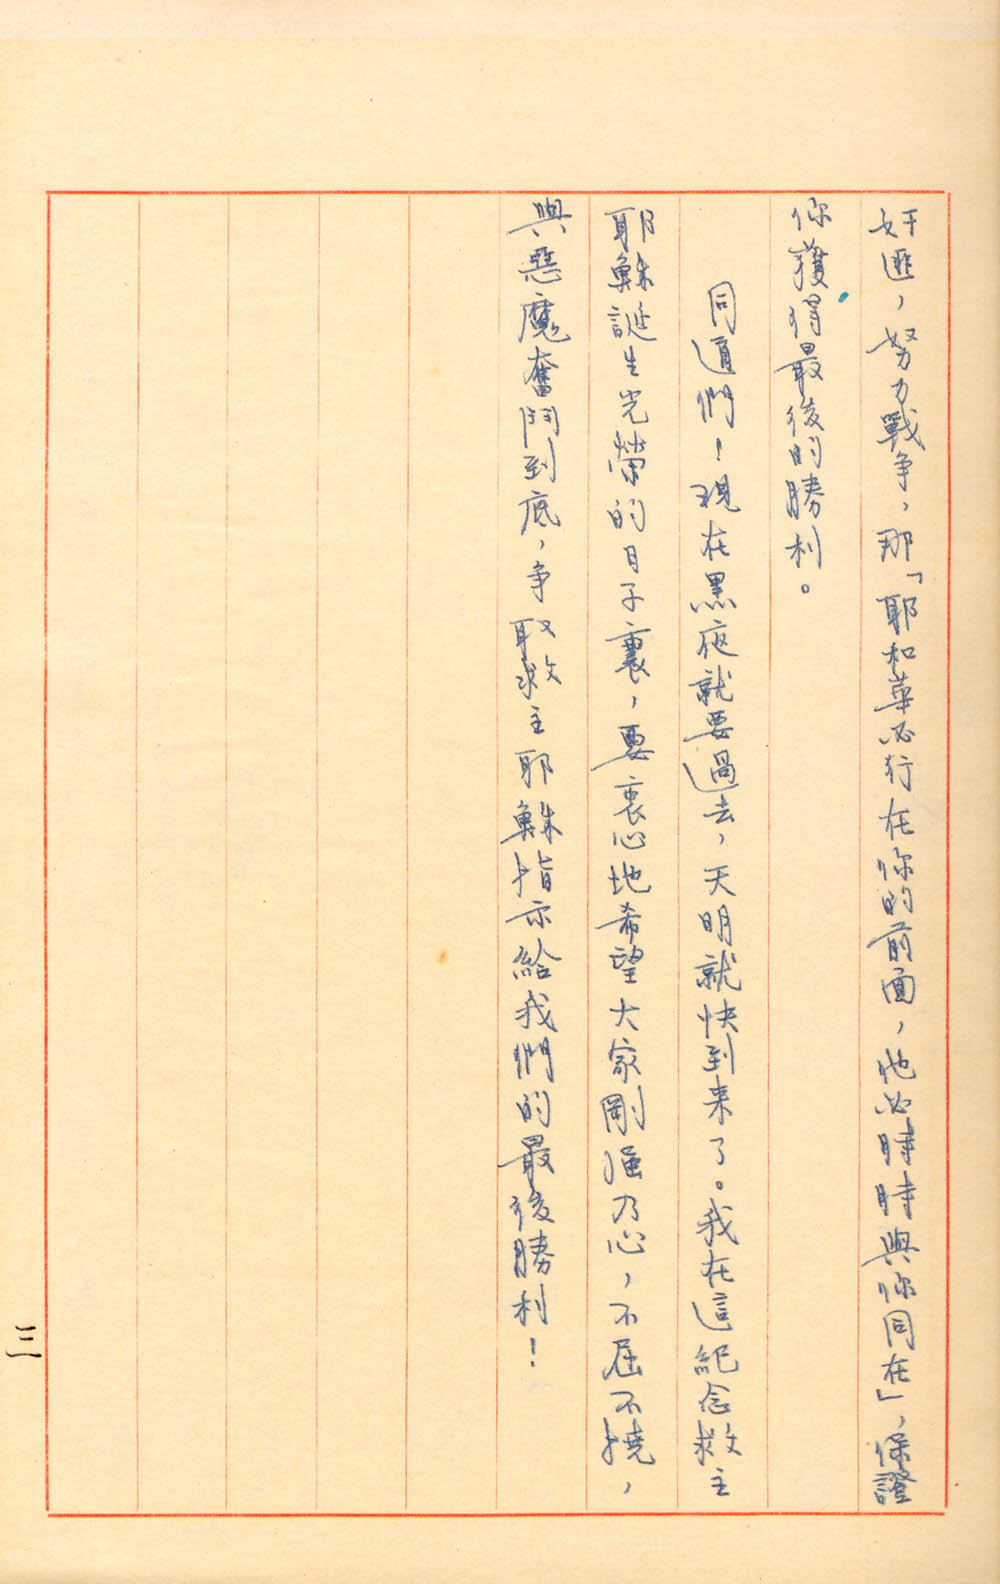 奸匪，努力戰争，那「耶和華必行在你的前面，他必時時與你同在」，保證
你獲得最後的勝利。
同道們！現在黑夜就要過去，天明就快到来了。我在這紀念救主
耶穌誕生光榮的日子裏，要衷心地希望大家剛強乃心，不屈不撓，
與惡魔奮鬥到底，争取救主耶穌指示給我們的最後勝利！
三